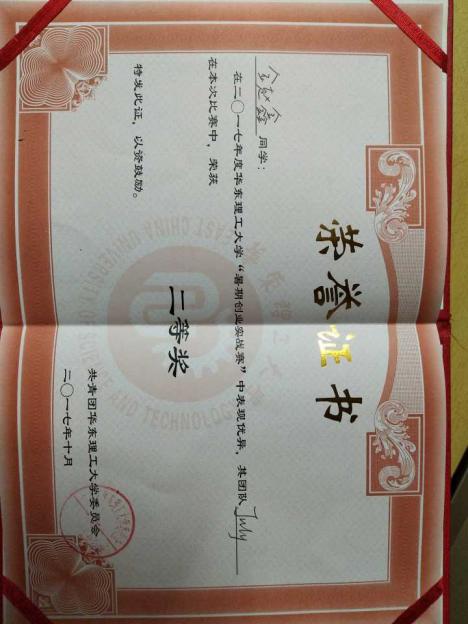 荣誉证书
金赵鑫 同学：
在二〇一七年度华东理工大学“暑期创业实战赛”中表现优异，其团队 July
在本次比赛中，荣获
二等奖
特发此证，以资鼓励。
共青团华东理工大学委员会
二〇一七年十月
EAST CHINA UNIVERSITY OF SCIENCE AND TECHNOLOGY